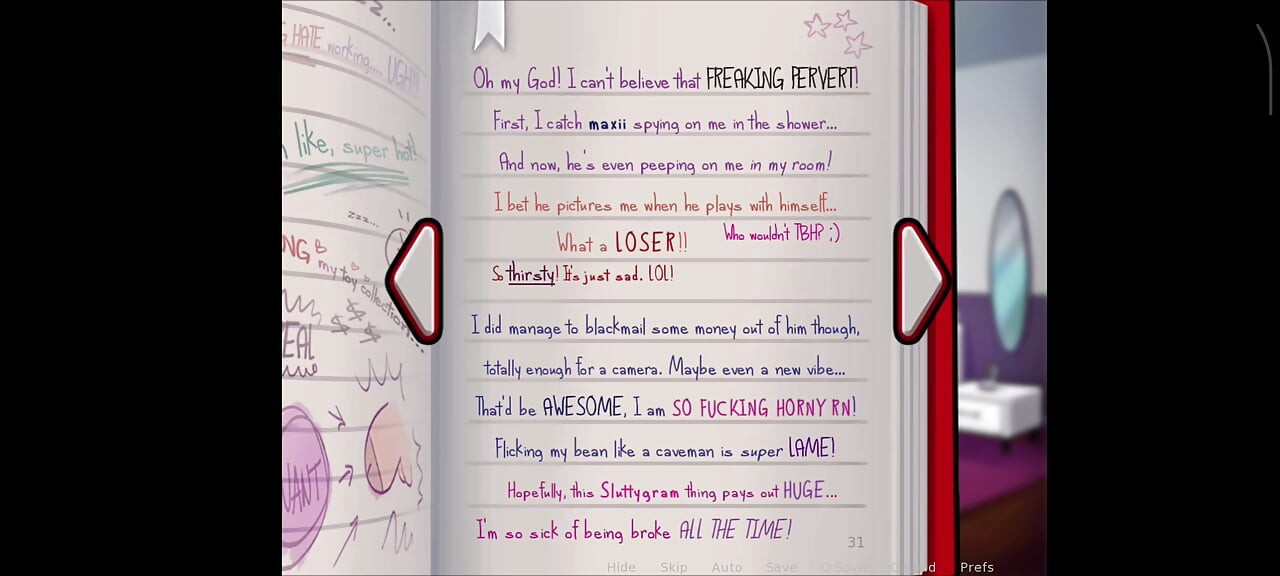 HATE working.... UGH!!!
like, super hot!
zzz...
my toy collection...
WANT
Oh my God! I can't believe that FREAKING PERVERT!
First, I catch maxii spying on me in the shower...
And now, he's even peeping on me in my room!
I bet he pictures me when he plays with himself...
What a LOSER!! Who wouldn't TBH? ;)
So thirsty! It's just sad. LOL!
I did manage to blackmail some money out of him though,
totally enough for a camera. Maybe even a new vibe...
That'd be AWESOME, I am SO FUCKING HORNY RN!
Flicking my bean like a caveman is super LAME!
Hopefully, this Sluttygram thing pays out HUGE...
I'm so sick of being broke ALL THE TIME!
31
Hide Skip Auto Save Q.Save Prefs